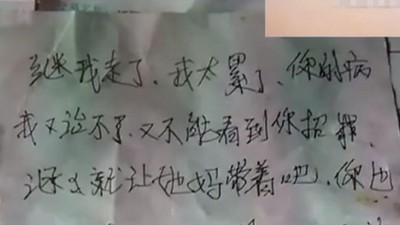 我走了、我太累了、你的病
我又治不了、又不能看到你招罪、
就让她妈带着吧、你也